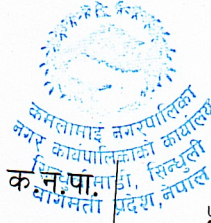 कमलामाई नगरपालिका
नगर कार्यपालिकाको कार्यालय
सिन्धुली
बागमती प्रदेश, नेपाल
क.न.पा.